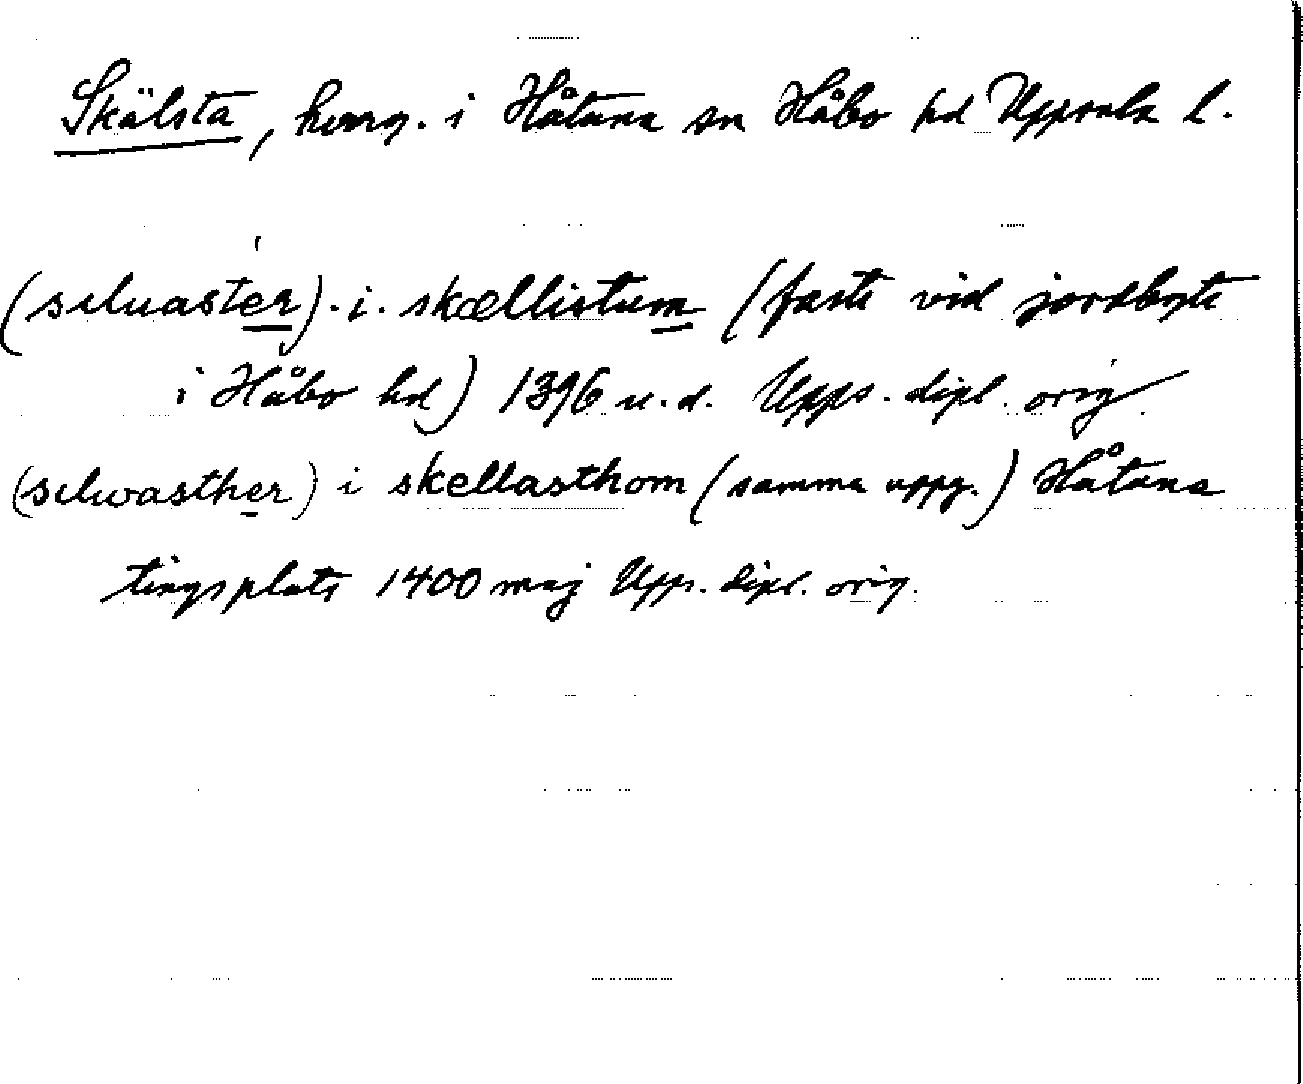 Skälsta, herrg. i Håtuna sn Håbo hd Uppsala l.
(siluaster). i. skællistum (faste vid jordbyte
i Håbo hd) 1396 u.d. Upps. dipl. orig
(silwasther) i skellasthom (samma uppg.) Håtuna
tingsplats 1400 maj Upps. dipl. orig.